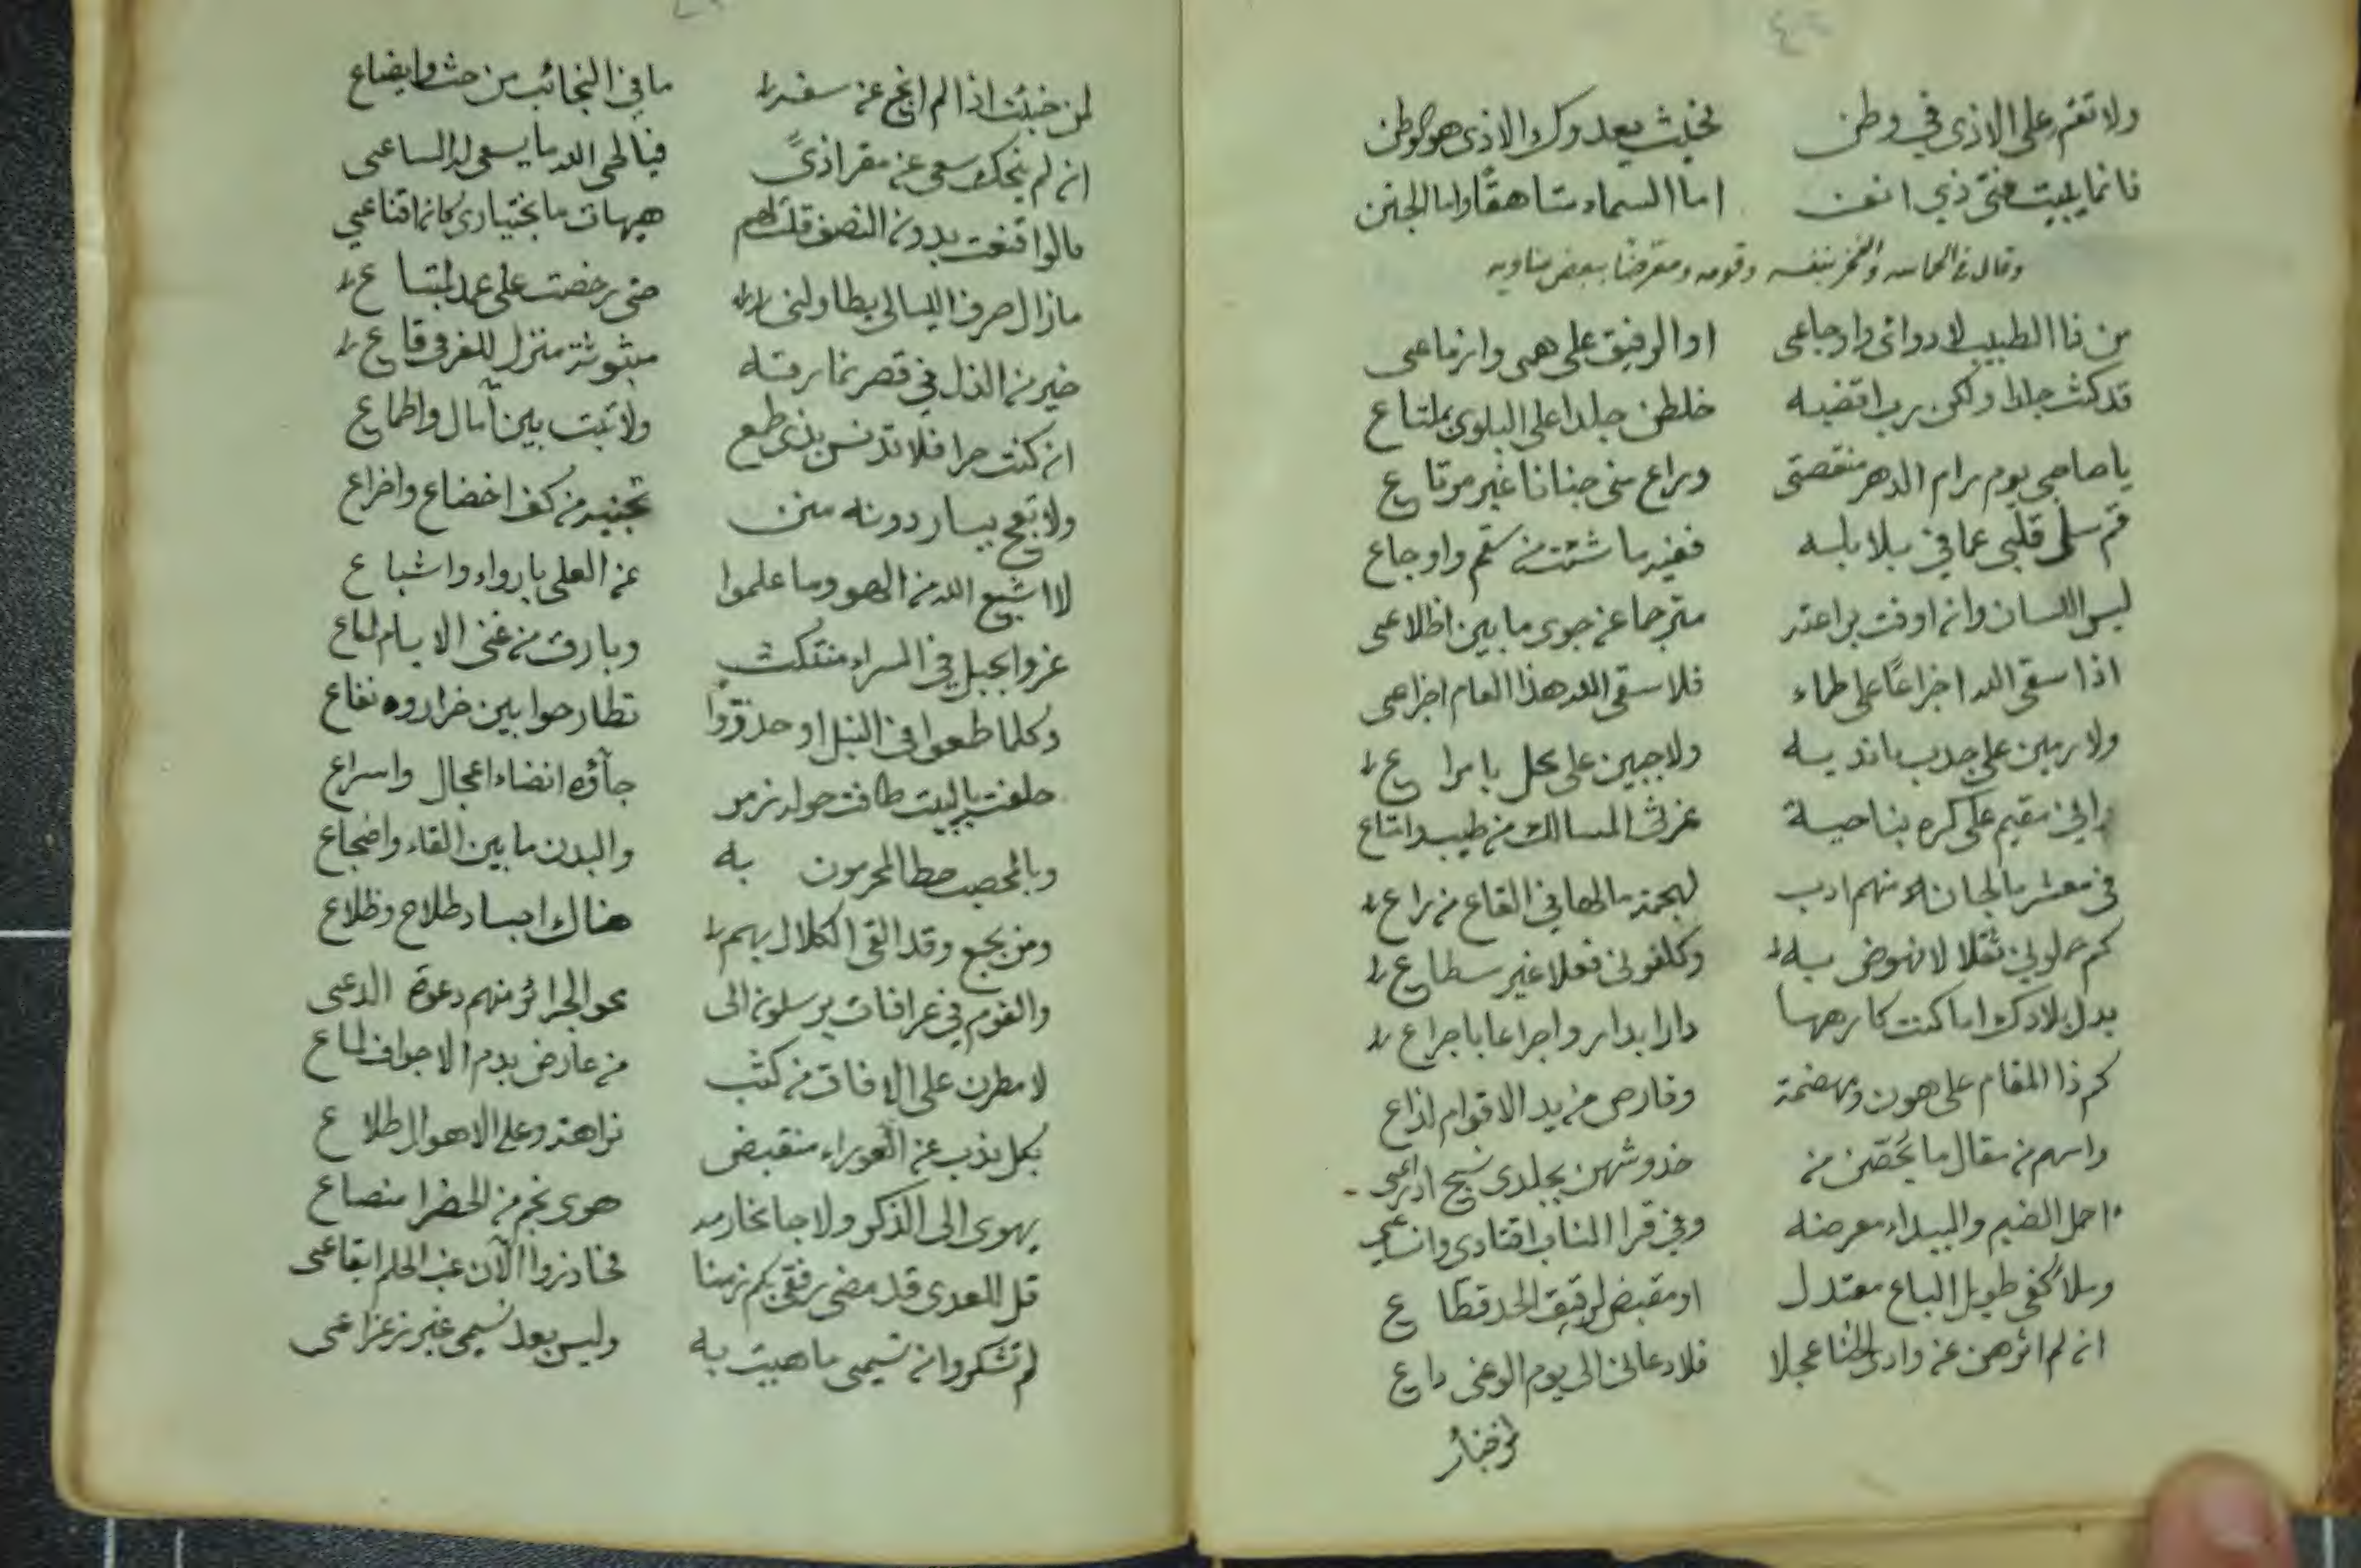 ولا تقم على الاذى في وطن    فحيث يعدوك الاذى هو الوطن
فانما يبيت فتى ذي انف    اما السماء شاهقا واما الجنن
وقال في الحماسه والفخر بنفسه وقومه ومعرضا ببعض مناويه
من ذا الطبيب لادوائي واوجاعي    او الرفيق على همي وازماعي
قد كنت جلدا ولكن رب اقضيه    خلطن جلدا على البلوى بملتاع
يا صاحبي يوم رام الدهر منقصتي    وراع مني جنانا غير مرتاع
قم سل قلبي عما في بلابله    ففيه ما شئت من سقم واوجاع
ليس اللسان وان اوفت براعته    مترجما عن جوى ما بين اظلاعي
اذا سقى الله اجزاعا على ظماء    فلا سقى الله هذا العام اجزاعي
ولا رمين على جدب باندية    ولا جبين على محل بامراع
راني مقيم على كره بناحية    غرثى المسالك من طيب وامتاع
في معشر ما لجان منهم ادب    لبهمة ما لها في القاع من راع
كم حملوني ثقلا لا نهوض به    وكلفوني فعلا غير سطاع
بدل بلادك اما كنت كارهها    دارا بدار واجراعا باجراع
كم ذا المقام على هون ومهضمة    وقارص من يد الاقوام لذاع
واسهم من مقال ما يحصن من    خدوشهن بجلدي نسج ادراعي
احمل الضيم والبيداء معرضة    وفي قرا الناب اقتادي وانساعي
وملا كفي طويل الباع معتدل    او مقبض لرقيق الحد قطاع
ان لم اثرهن عن وادي الخنا عجلا    فلا دعاني الى يوم الوغى داع
لمن خبئت اذا لم انج عن سفه    ما في النجائب من حث وايضاع
ان لم ينجك سعي عن مقر اذى    فيا لحى الله ما يسعى له الساعي
قالوا قنعت بدون النصف قلت لهم    هيهات ما باختياري كان اقناعي
ما زال صرف الليالي يطاولني    حتى رخصت على عمد لمبتاع
خير من الذل في قصر نمارقه    مبثوثة منزل للفر في قاع
ان كنت حرا فلا تدنس بذي طبع    ولا تبت بين آمال واطماع
ولا تعج بيسار دونه منن    تجنيه من كف اخضاع واضراع
لا اشبع الله من الهو وما علموا    عن العلى بارواء واشباع
غروا بحبل في السراء منتكث    وبارق من غنى الايام لماع
وكلما طمعوا في النيل او حذقوا    تطارحوا بين ضرار ونفاع
حلفت بالبيت طافت حوله زمر    جآؤه انضاء اعجال واسراع
وبالمحصب حط المحرمون به    والبدن ما بين القاء واضجاع
ومن بجمع وقد القى الكلال بهم    هناك اجساد طلاح وظلاع
والقوم في عرافات يرسلون الى    محو الجرائر منهم دعوة الدعي
لا مطرن على الافاق من كثب    من عارض بدم الاجواف لماع
بكل ندب عن العوراء منقبض    نزاهة وعلى الاهوال طلاع
يهوى الى الذكر ولاجا مخارمه    هوى نجم من الخضرا منصاع
قل للعدى قد مضى رفقي بكم زمنا    فحاذروا الآن غب الحلم ايقاعي
لم تشكروا ان نسيمي ما هبيت به    وليس بعد نسيمي غير زعزاعي